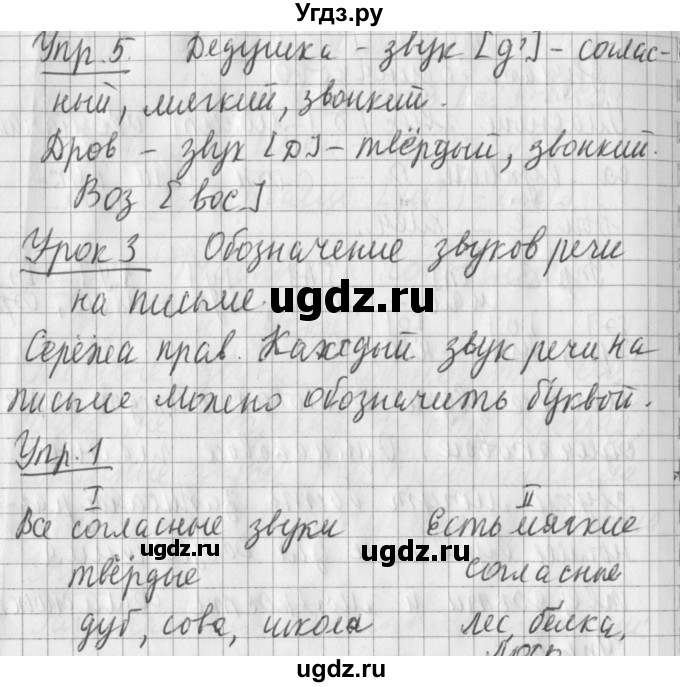 Угдз.ру
Упр. 5. Дедушка - звук [д'] - соглас-
ный, мягкий, звонкий.
Дров - звук [д] - твёрдый, звонкий.
Воз [вос]
Урок 3 Обозначение звуков речи
на письме.
ugdz.ru
Серёжа прав. Каждый звук речи на
письме можно обозначить буквой.
Упр. 1
I II
Все согласные звуки Есть мягкие
ugdz.ru ugdz.ru
твёрдые согласные
дуб, сова, школа лес, белка,
ugdz.ru